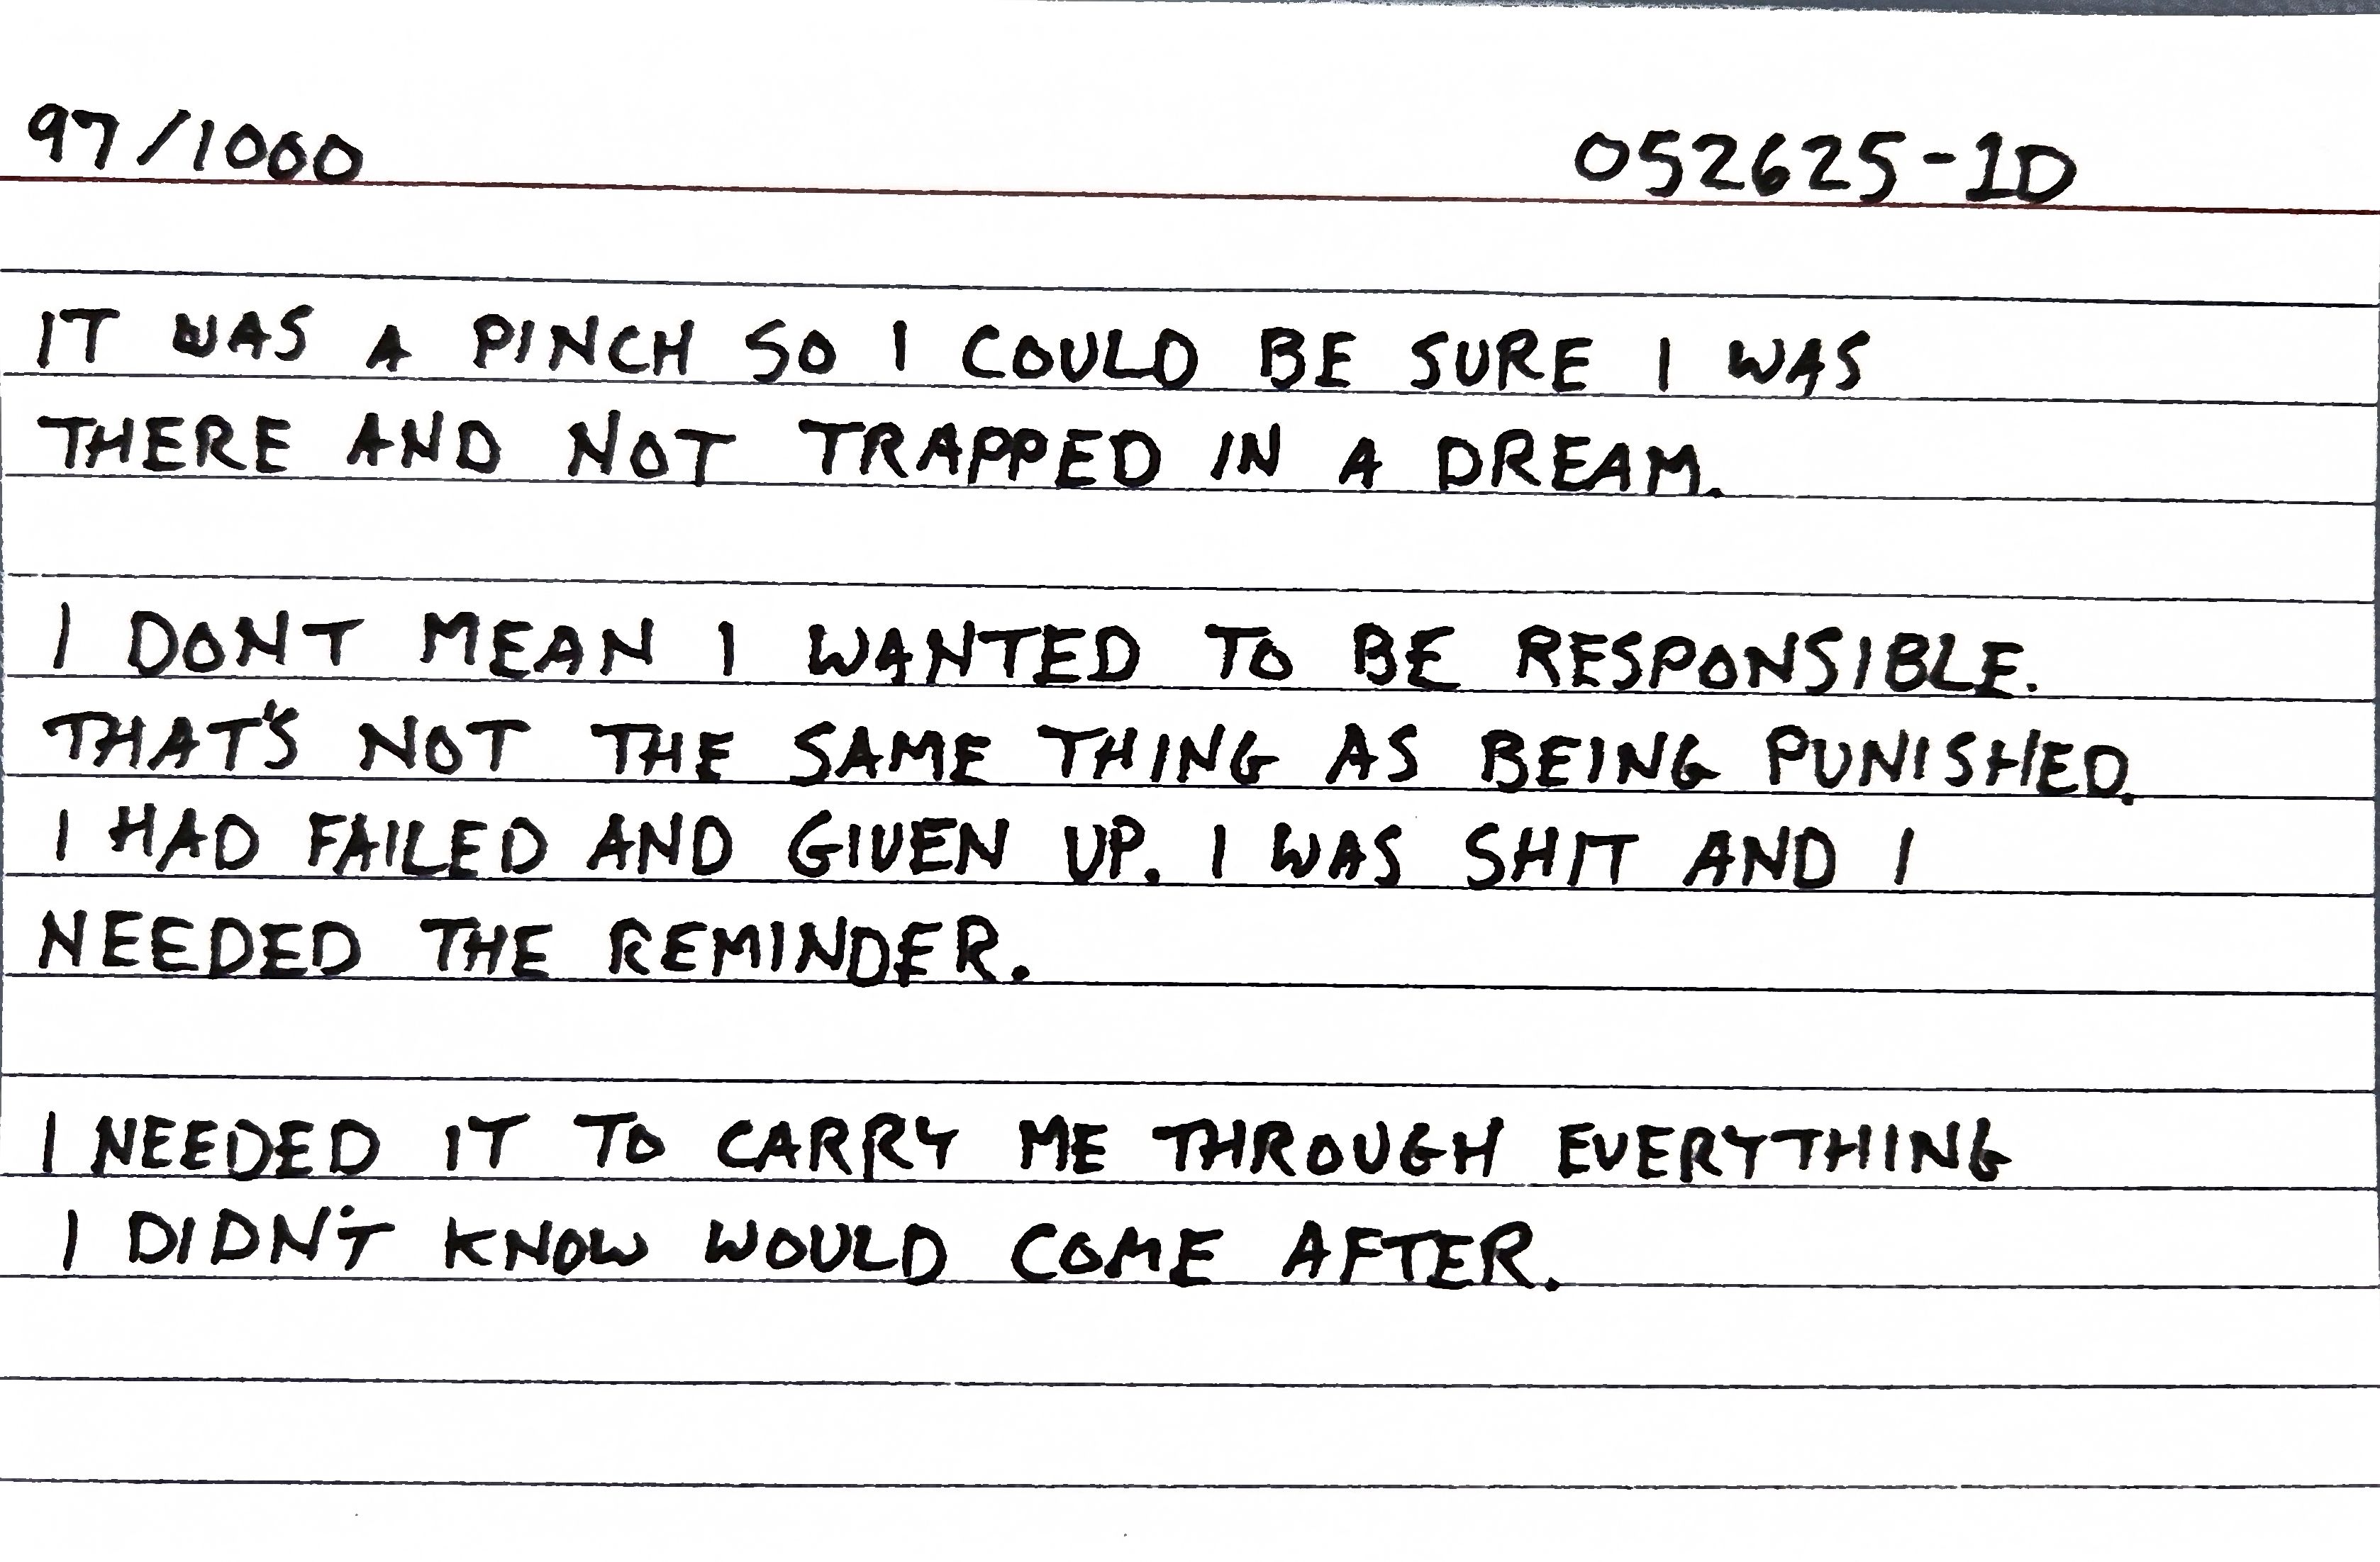 97/1000 052625-1D
IT WAS A PINCH SO I COULD BE SURE I WAS
THERE AND NOT TRAPPED IN A DREAM.
I DONT MEAN I WANTED TO BE RESPONSIBLE.
THAT'S NOT THE SAME THING AS BEING PUNISHED.
I HAD FAILED AND GIVEN UP. I WAS SHIT AND I
NEEDED THE REMINDER.
I NEEDED IT TO CARRY ME THROUGH EVERYTHING
I DIDN'T KNOW WOULD COME AFTER.